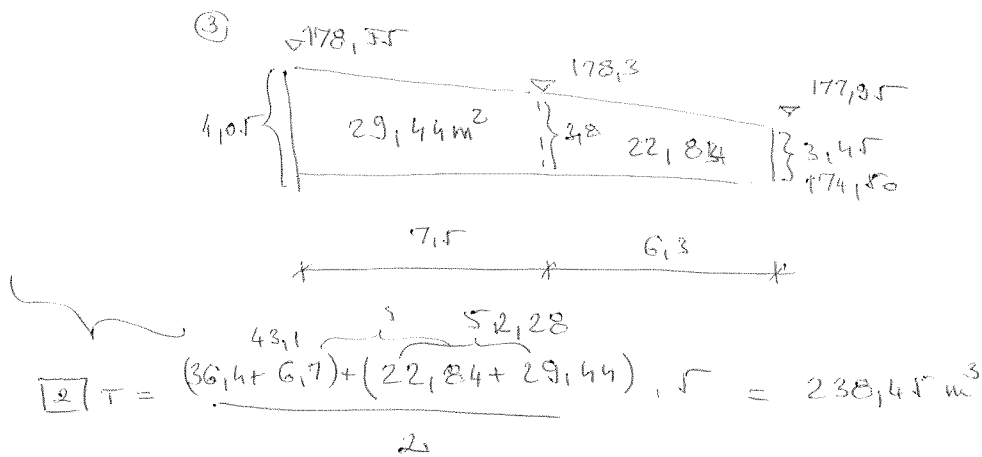 3
178,55
178,3
177,95
4,05
29,44m²
3,8
22,84
3,45
174,50
7,5
6,3
43,1
5
52,28
2 T = (36,4+6,7)+(22,84+29,44) . 5 = 238,45 m³
2